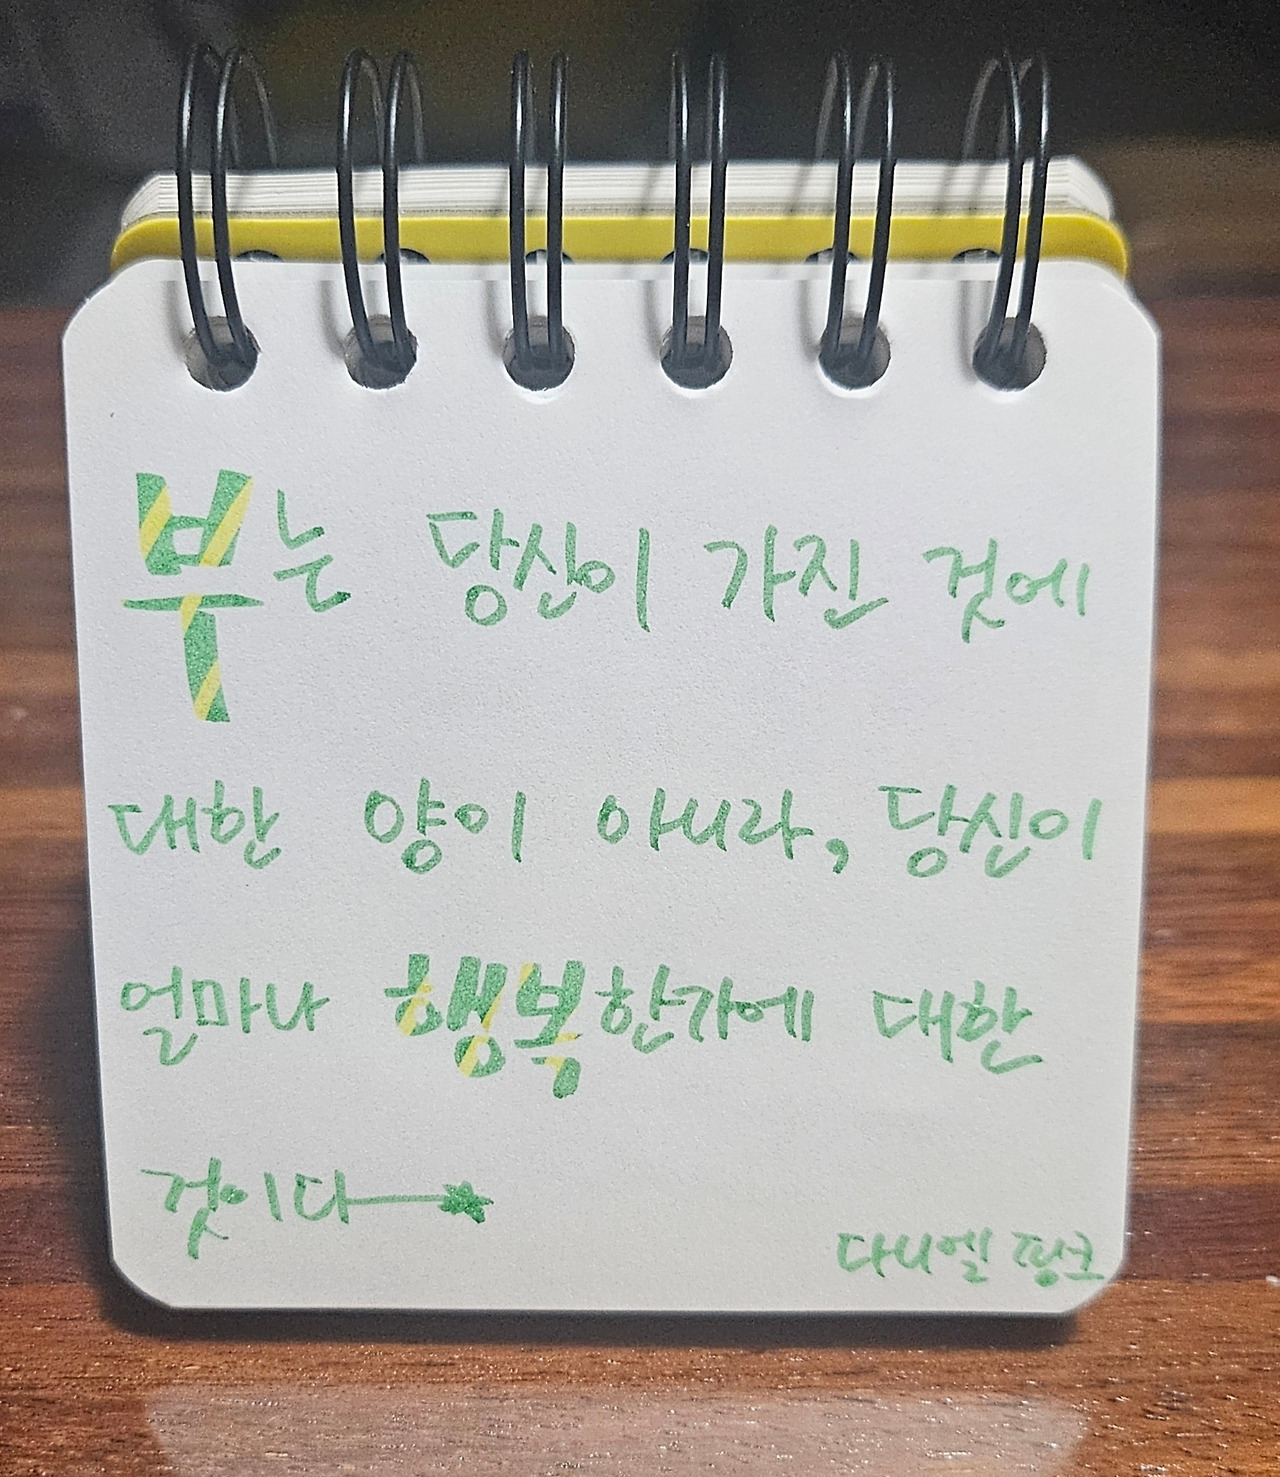 부는 당신이 가진 것에
대한 양이 아니라, 당신이
얼마나 행복한가에 대한
것이다
다니엘 핑크